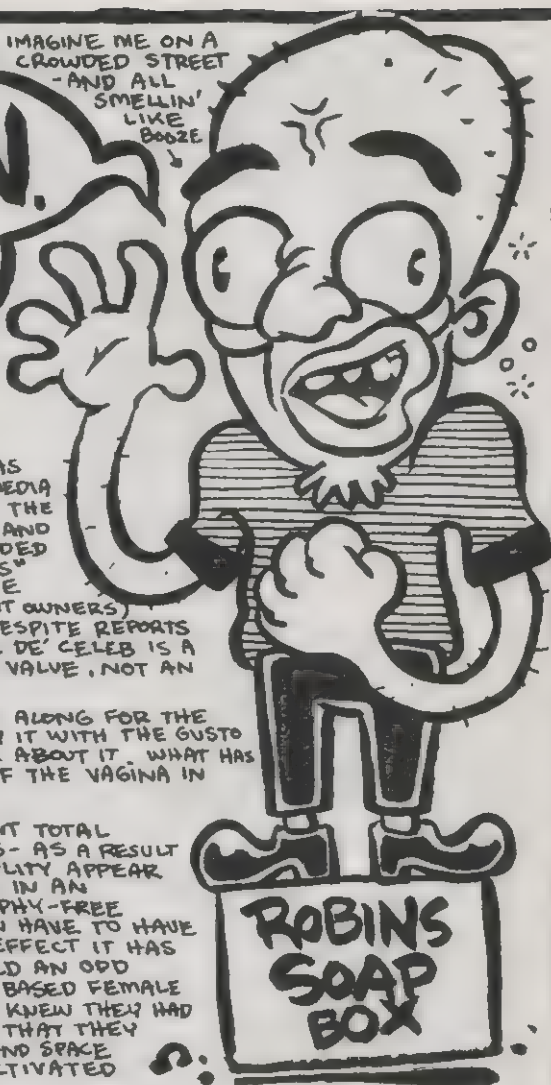 IMAGINE ME ON A
CROWDED STREET
-AND ALL
SMELLIN'
LIKE
BOOZE
AS
EDIA
THE
AND
DED
S"
E
T OWNERS)
ESPITE REPORTS
DE' CELEB IS A
VALUE, NOT AN
ALONG FOR THE
IT WITH THE GUSTO
ABOUT IT. WHAT HAS
F THE VAGINA IN
NT TOTAL
S- AS A RESULT
LITY APPEAR
IN AN
PHY-FREE
N HAVE TO HAVE
EFFECT IT HAS
LD AN ODD
BASED FEMALE
KNEW THEY HAD
THAT THEY
ND SPACE
LTIVATED
ROBINS
SOAP
BOX